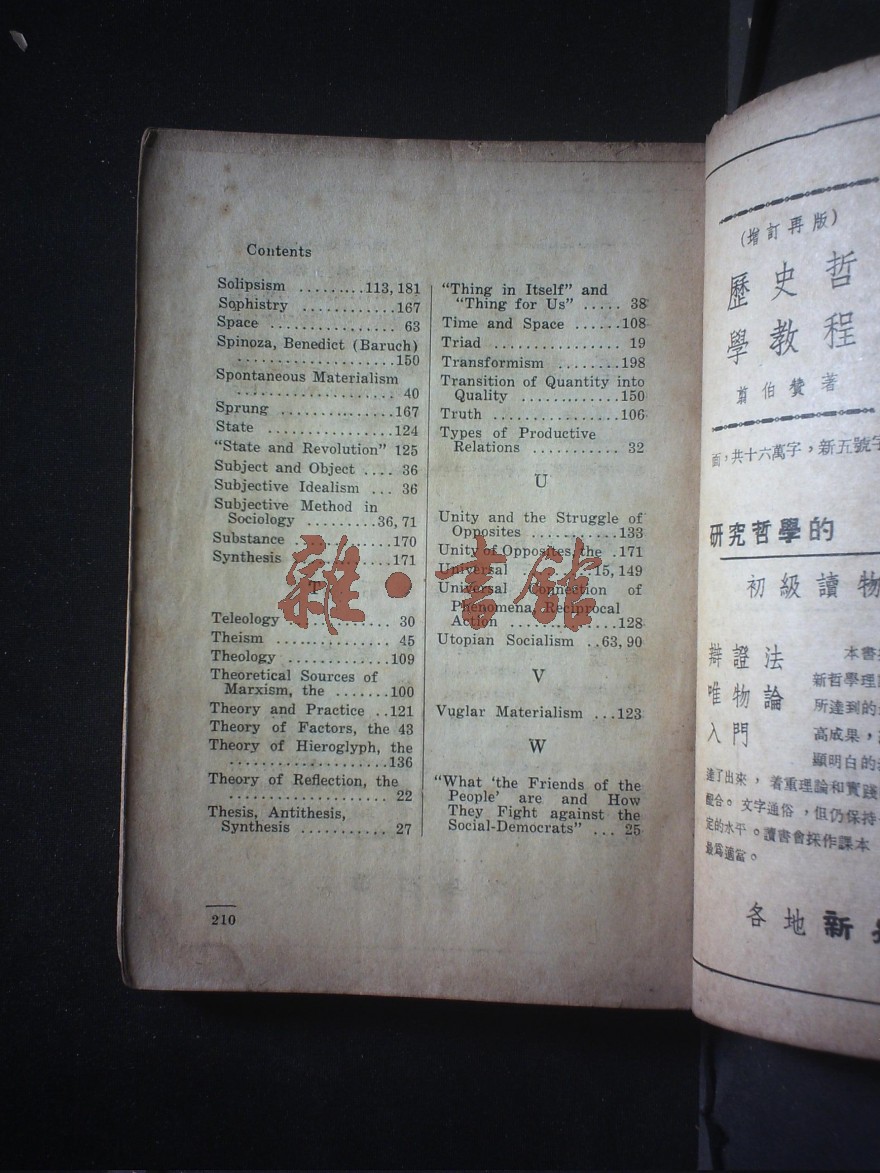 Contents
Solipsism .........113, 181
Sophistry ............167
Space ................ 63
Spinoza, Benedict (Baruch)
....................150
Spontaneous Materialism
.................... 40
Sprung ..............167
State ................124
“State and Revolution” 125
Subject and Object .... 36
Subjective Idealism ... 36
Subjective Method in
Sociology .........36, 71
Substance .............170
Synthesis .............171
T
Teleology ............. 30
Theism ............... 45
Theology .............109
Theoretical Sources of
Marxism, the .......100
Theory and Practice ..121
Theory of Factors, the 43
Theory of Hieroglyph, the
....................136
Theory of Reflection, the
.................... 22
Thesis, Antithesis,
Synthesis ........... 27
“Thing in Itself” and
“Thing for Us” ..... 38
Time and Space ......108
Triad ................ 19
Transformism ........198
Transition of Quantity into
Quality .............150
Truth ................106
Types of Productive
Relations ........... 32
U
Unity and the Struggle of
Opposites ...........133
Unity of Opposites, the .171
Universal ..........15, 149
Universal Connection of
Phenomena, Reciprocal
Action ..............128
Utopian Socialism ..63, 90
V
Vuglar Materialism ...123
W
“What ‘the Friends of the
People’ are and How
They Fight against the
Social-Democrats” ... 25
210
雜·書館
(增訂再版)
歷史哲
學教程
翦伯贊著
面，共十六萬字，新五號字
研究哲學的
初級讀物
辯證法
唯物論
入門
本書
新哲學理
所達到的
高成果，
顯明白的
達了出來，着重理論和實踐
配合。文字通俗，但仍保持
定的水平。讀書會採作課本
最爲適當。
各地新